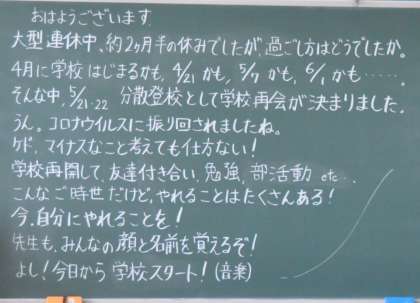 おはようございます.
大型連休中、約2ヶ月半の休みでしたが、過ごし方はどうでしたか。
4月に学校はじまるかも、4/21かも、5/7かも、6/1かも・・・・・・.
そんな中、5/21・22 分散登校として学校再会が決まりました.
うん。コロナウイルスに振り回されましたね。
ケド、マイナスなこと考えても仕方ない!
学校再開して、友達付き合い、勉強、部活動 etc…
こんなご時世だけど、やれることはたくさんある!
今、自分にやれることを!
先生も、みんなの顔と名前を覚えるぞ!
よし!今日から学校スタート!(音楽)